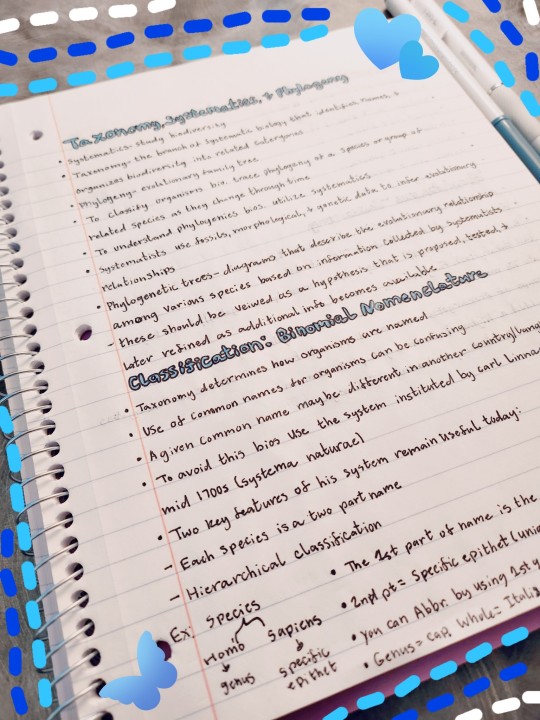 Taxonomy, Systematics, + Phylogeny
• Systematics- study biodiversity
• Taxonomy- the branch of systematic biology that identifies, names, +
organizes biodiversity into related categories
• Phylogeny- evolutionary family tree
• To classify organisms bio. trace phylogeny of a species or group of
related species as they change through time
• To understand phylogenies bios. utilize systematics
• Systematists use fossils, morphological, + genetic data to infer evolutionary
relationships
• Phylogenetic trees- diagrams that describe the evolutionary relationship
among various species based on information collected by systematists
- these should be veiwed as a hypothesis that is proposed, tested, +
later refined as additional info becomes available
Classification: Binomial Nomenclature
• Taxonomy determines how organisms are named
• Use of common names for organisms can be confusing
• A given common name maybe different in another country/
• To avoid this bios use the system instituted by carl
mid 1700s (systema naturae)
• Two key features of his system remain useful today:
- Each species is a two part name
- Hierarchical classification
• The 1st part of name is the
• 2nd pt = Specific epithet
• you can Abbr. by using 1st
• Genus = cap, whole =
Ex: Species
Homo Sapiens
genus specific
epithet